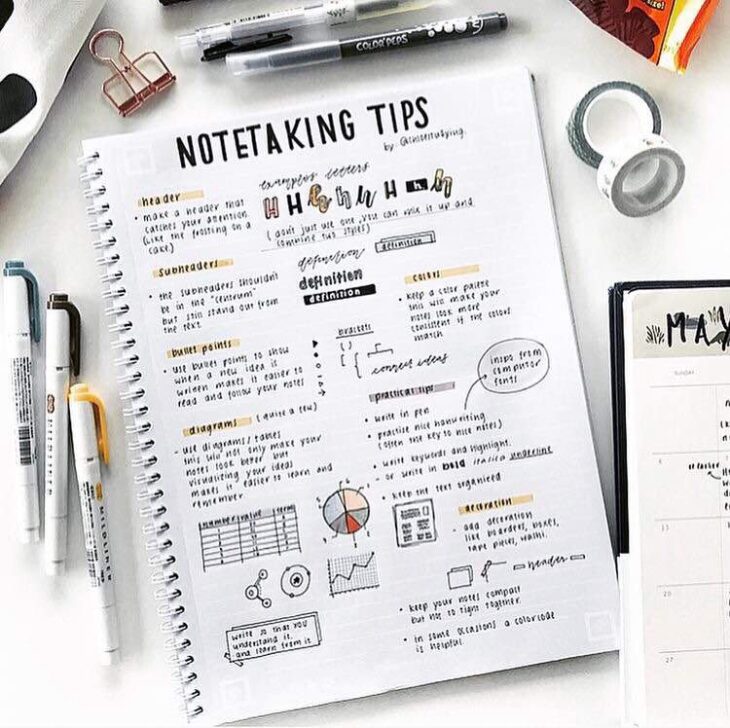 COLOR'PEPS
NOTETAKING TIPS
header
• make a header that
catches your attention.
(like the frosting on a
cake)
examples letters
H H H h h H h h
(don't just use one, you can mix it up and
combine two styles)
Subheaders
• the subheaders shouldn't
be in the "centrum"
but still stand out from
the text
definition
definition
definition
definition
colors
• keep a color palette
this will make your
notes look more
consistent if the colors
match
bullet points
• use bullet points to show
when a new idea is
written makes it easier to
read and follow your notes
brackets
connect ideas
inspo from
computer
fonts
practical tips
• write in pen
• practice nice handwriting
(often the key to nice notes)
• write keywords and highlight.
- or write in bold italics underline
• keep the text organized
diagrams (quite a few)
- use diagrams/tables
this will not only make your
notes look better but
visualizing your ideas
makes it easier to learn and
remember
number value
decoration
- add decoration
like boarders, boxes,
tape pieces, washi.
header
write so that you
understand it
and learn from it
• keep your notes compact
but not to tight together.
• in some occasions a colorcode
is helpful
MAY
SUNDAY
6
13
20
27
MILDLINER